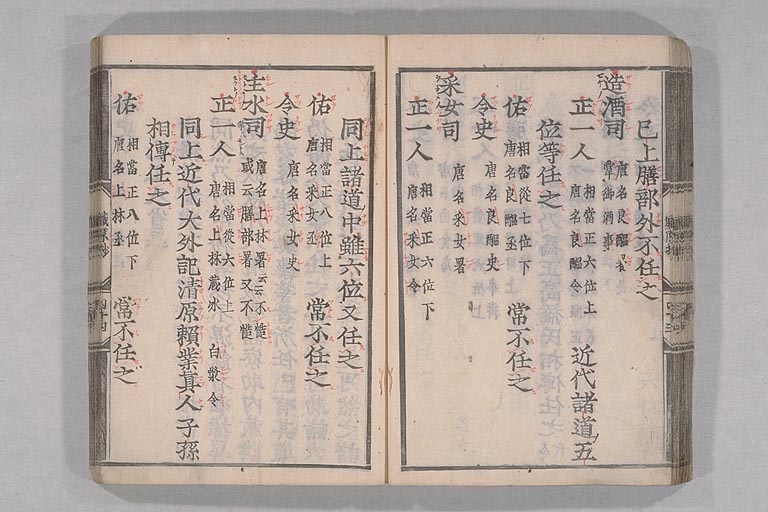 已上膳部外不任之
造酒司 唐名良醞署
掌御酒事
正一人 相當正六位上
唐名良醞令
近代諸道五
位等任之
佑 相當從七位下
唐名良醞丞
常不任之
令史 唐名良醞史
采女司 唐名采女署
正一人 相當正六位下
唐名采女令
同上諸道中雖六位又任之
佑 相當正八位上
唐名采女丞
常不任之
令史 唐名采女史
主水司 唐名上林署云云不慥
或云膳部署又不慥
正一人 相當從六位上
唐名上林 藏氷 白漿令
同上近代大外記清原賴業眞人子孫
相傳任之
佑 相當正八位下
唐名上林丞
常不任之